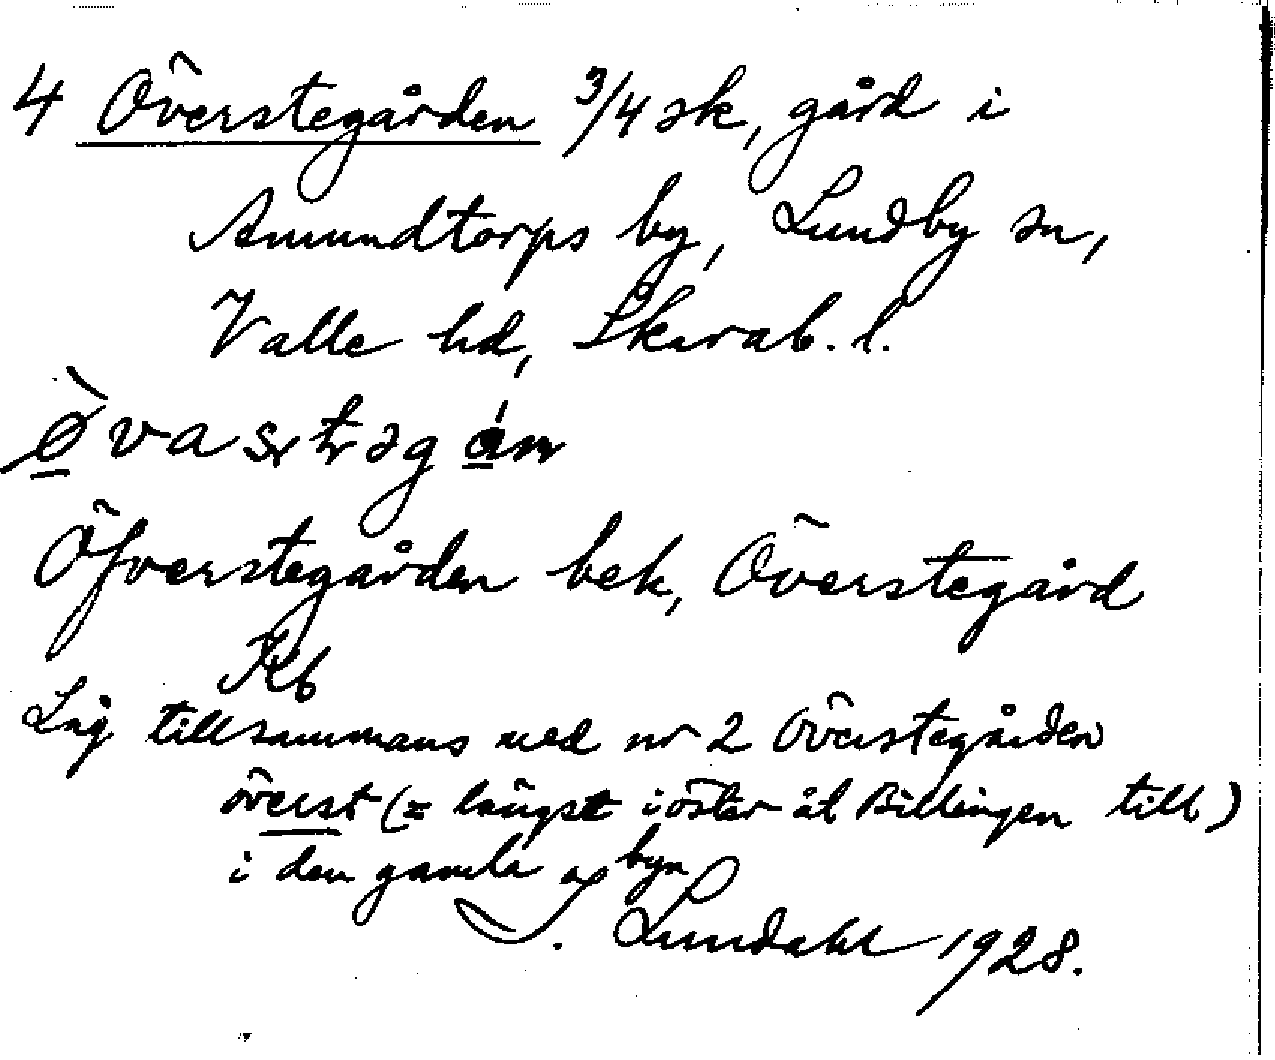 4 Överstegården 3/4 sk, gård i
Amundtorps by, Lundby sn,
Valle hd, Skarab. l.
Öfverstegården bek, Överstegård
Kb
Låg tillsammans med nr 2 Överstegården
överst (= längst i öster åt Billingen till)
i den gamla byn
J. Lundahl 1928.